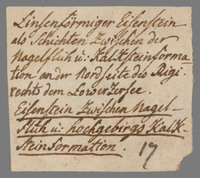 Linsenförmiger Eisenstein
als Schichten zwischen der
Nagelfluh u: Kalksteinforma
tion an der Nordseite des Rigi
rechts dem Lowerzersee.
Eisenstein zwischen Nagel-
fluh u: hochgebirgs Kalk
steinformation.
17